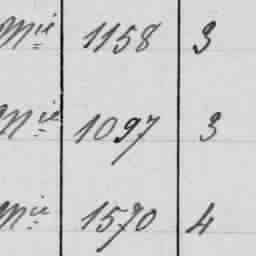 Mie 1158 3
Mie 1097 3
Mie 1570 4